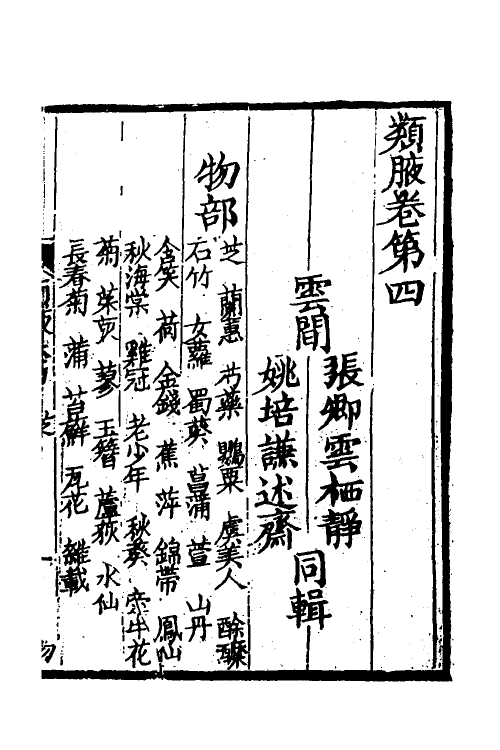 類腋卷第四
雲間
張卿雲栖靜
姚培謙述齋
同輯
物部
芝 蘭蕙 芍藥 鸎粟 虞美人 酴醾
石竹 女蘿 蜀葵 菖蒲 萱 山丹
含笑 荷 金錢 蕉 萍 錦帶 鳳仙
秋海棠 雞冠 老少年 秋葵 牽牛花
菊 茱萸 蓼 玉簪 蘆荻 水仙
長春菊 蒲 苔蘚 瓦花 雜載